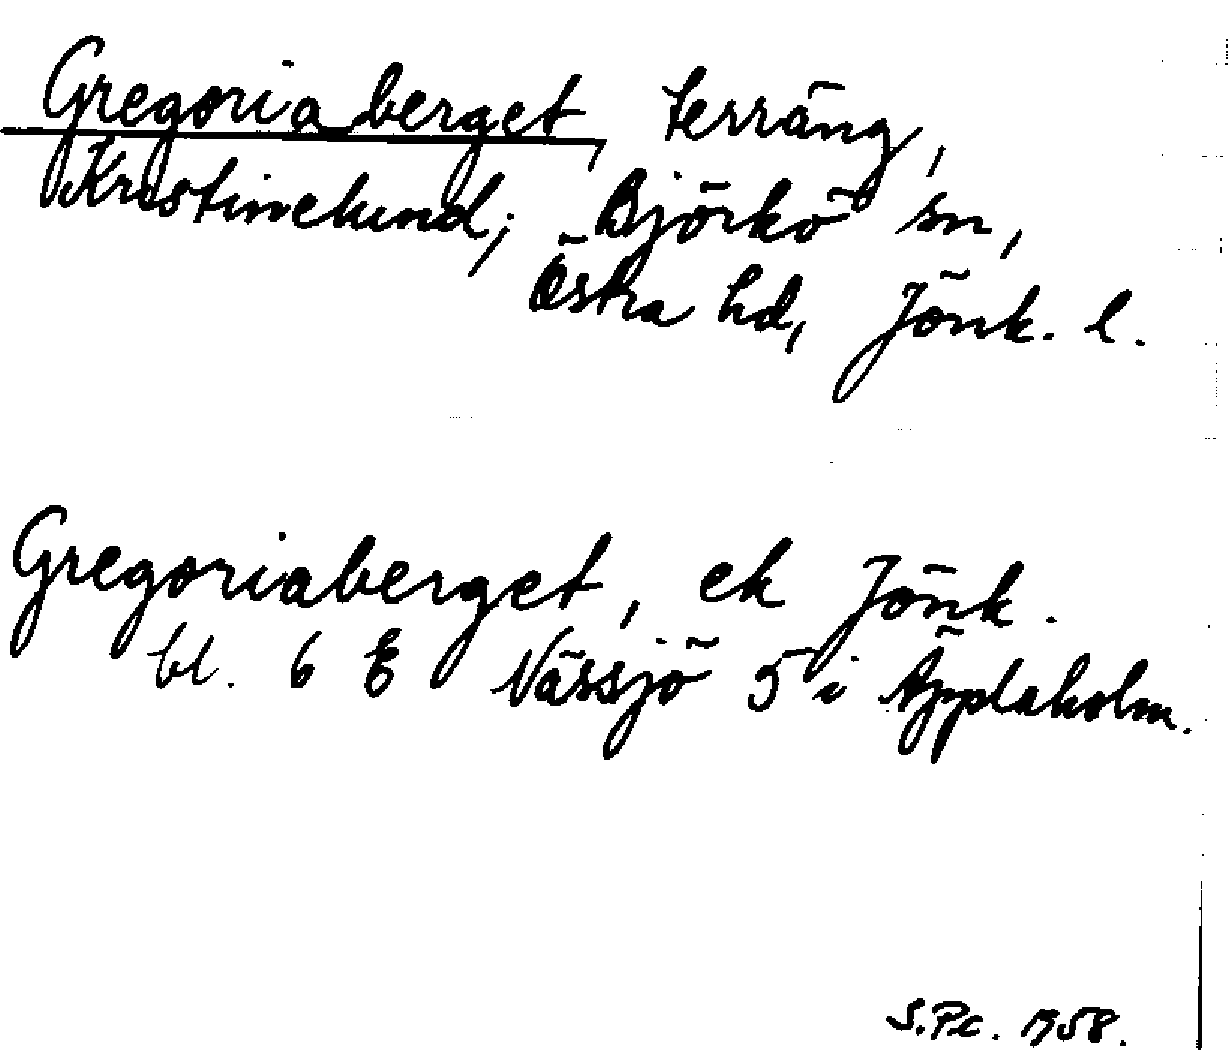 Gregoriaberget, terräng,
Kristinelund; Björkö sn,
Östra hd, Jönk. l.
Gregoriaberget, ek Jönk.
bl. 6 E Nässjö 5 i Äpplaholm.
S.Pc. 1958.